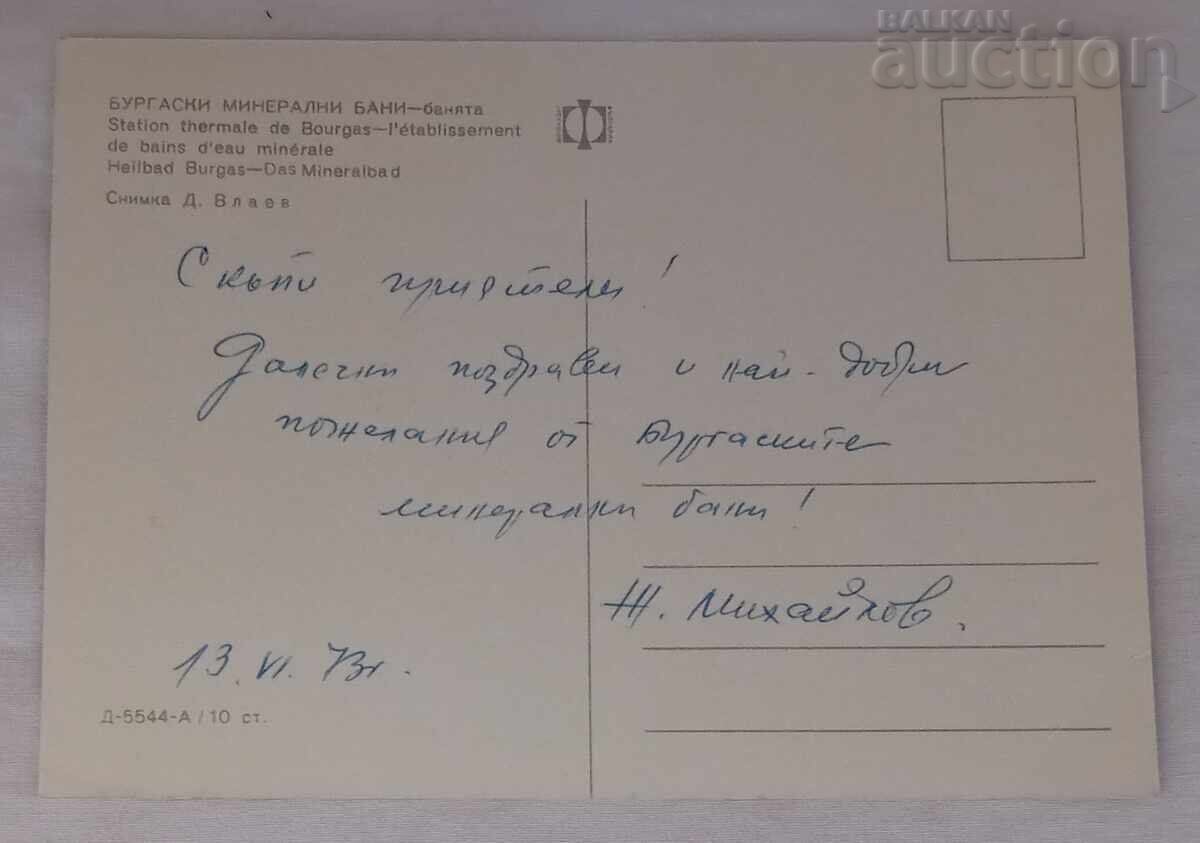 BALKAN
auction
БУРГАСКИ МИНЕРАЛНИ БАНИ—банята
Station thermale de Bourgas—l'établissement
de bains d'eau minérale
Heilbad Burgas—Das Mineralbad
Снимка Д. Влаев
Скъпи приятели!
Далечни поздрави и най-добри
пожелания от Бургаските
минерални бани!
Ж. Михайлов.
13.VI.73г.
Д-5544-А/10 ст.